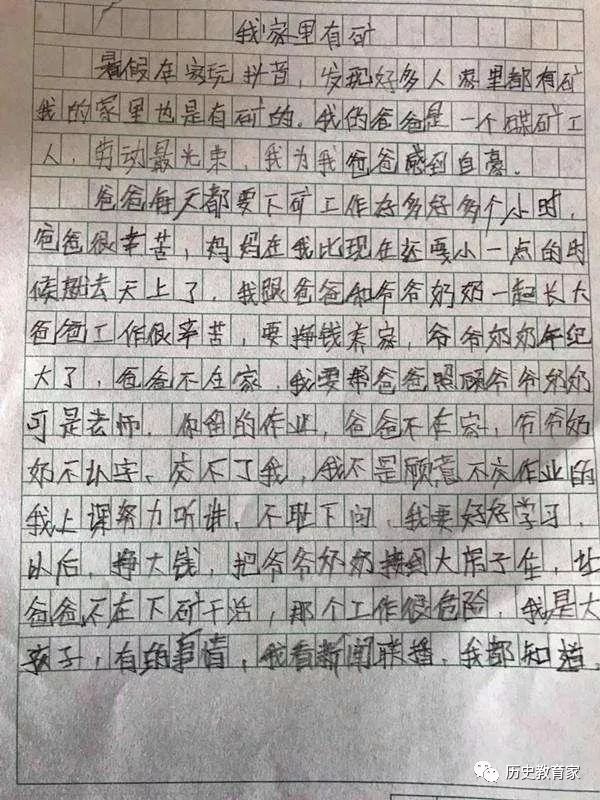 我家里有矿
暑假在家玩抖音，发现好多人家里都有矿
我的家里也是有矿的。我的爸爸是一个煤矿工
人，劳动最光荣，我为我爸爸感到自豪。
爸爸每天都要下矿工作好多好多个小时，
爸爸很辛苦，妈妈在我比现在还要小一点的时
候就去天上了，我跟爸爸和爷爷奶奶一起长大
爸爸工作很辛苦，要挣钱养家，爷爷奶奶年纪
大了，爸爸不在家，我要帮爸爸照顾爷爷奶奶
可是老师，你留的作业，爸爸不在家，爷爷奶
奶不认字、交不了我，我不是愿意不交作业的
我上课努力听讲、不耻下问，我要好好学习，
以后，挣大钱，把爷爷奶奶接到大房子住，让
爸爸不在下矿干活，那个工作很危险，我是大
孩子，有的事情，我看新闻联播，我都知道。
历史教育家